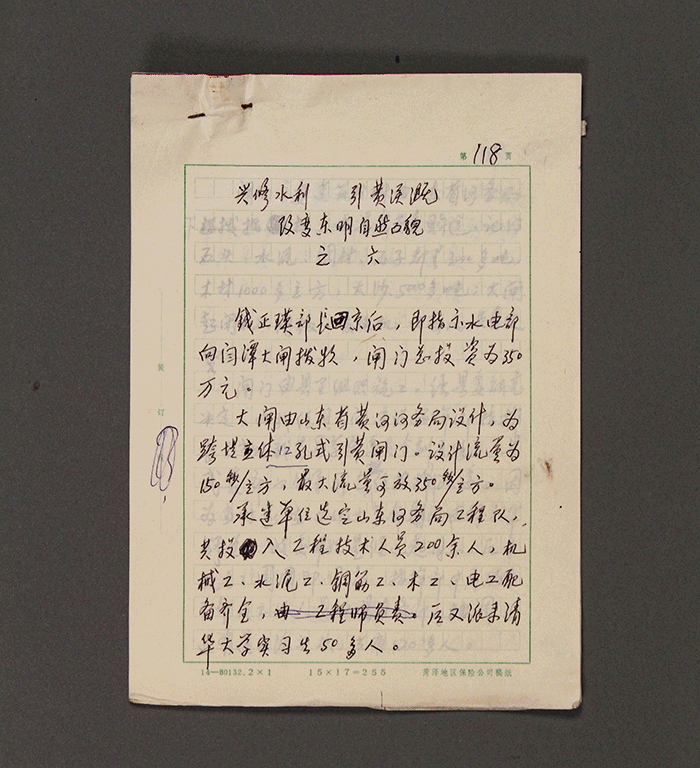 第 118 页
兴修水利 引黄溉
改变东明自然面貌
之六
钱正瑛部长回京后，即指示水电部
向闫潭大闸拨款，闸门总投资为350
万元。
大闸由山东省黄河河务局设计，为
跨堤立体12孔式引黄闸门。设计流量为
150秒/立方，最大流量可放350秒/立方。
承建单位选定山东河务局工程队，
共投入工程技术人员200余人，机
械工、水泥工、钢筋工、木工、电工配
备齐全，由工程师负责。后又派来清
华大学实习生50多人。
装
订
14—80132.2×1 15×17=255 菏泽地区保险公司稿纸